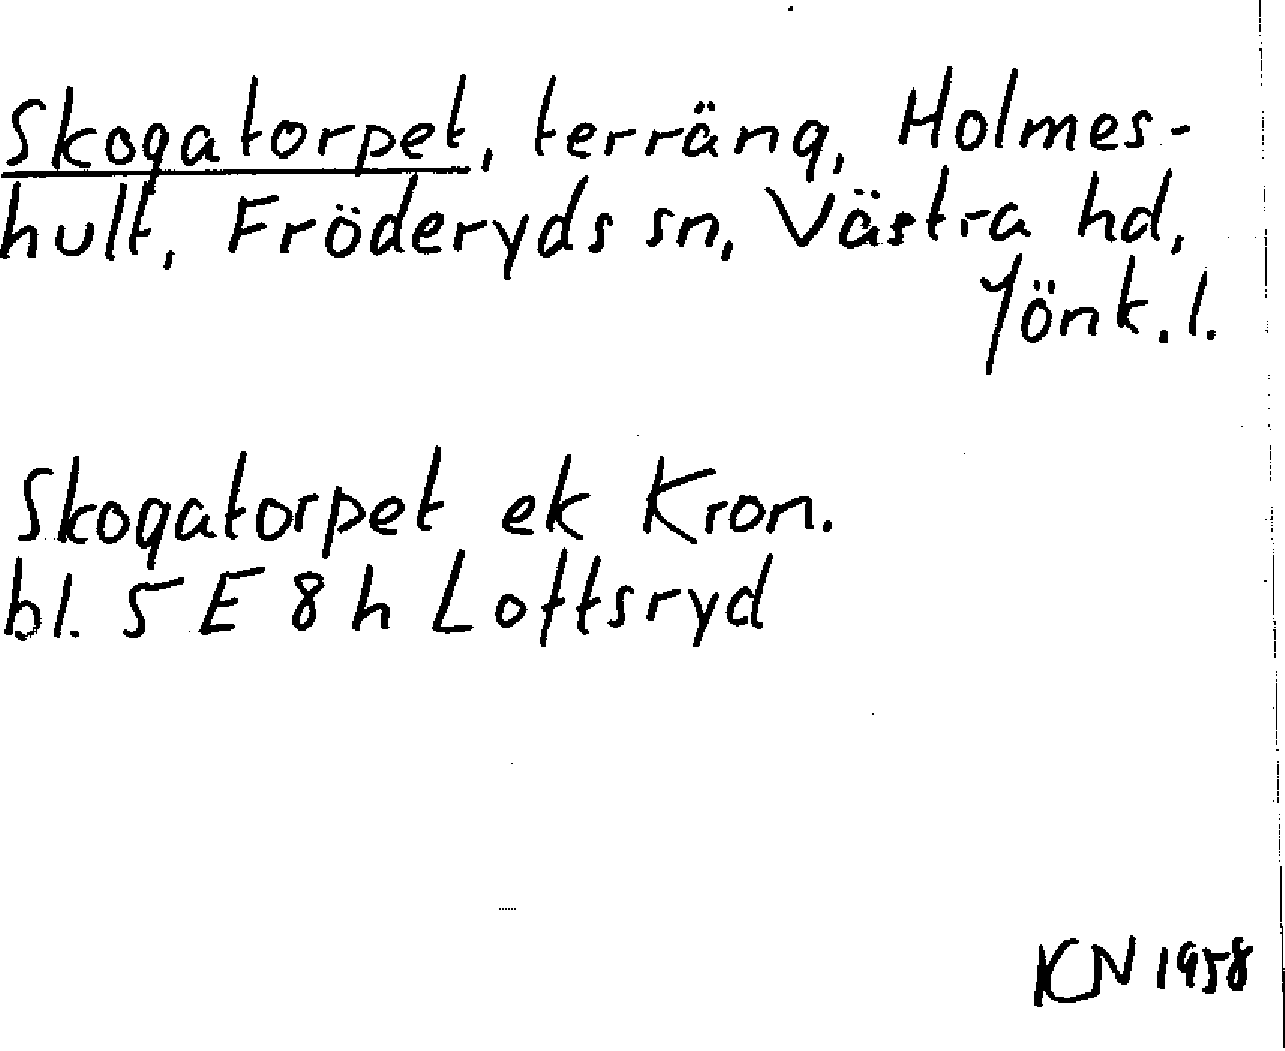 Skogatorpet, terräng, Holmes-
hult, Fröderyds sn, Västra hd,
Jönk. l.
Skogatorpet ek Kron.
bl. 5 E 8 h Loftsryd
KN 1958